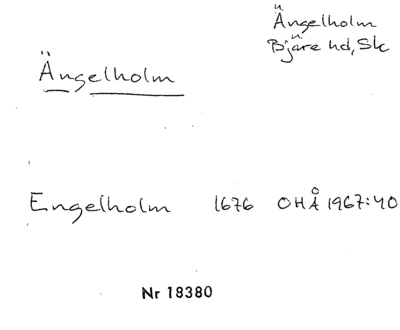 Ängelholm
Bjäre hd, Sk
Ängelholm
Engelholm 1676 OHÅ 1967:40
Nr 18380